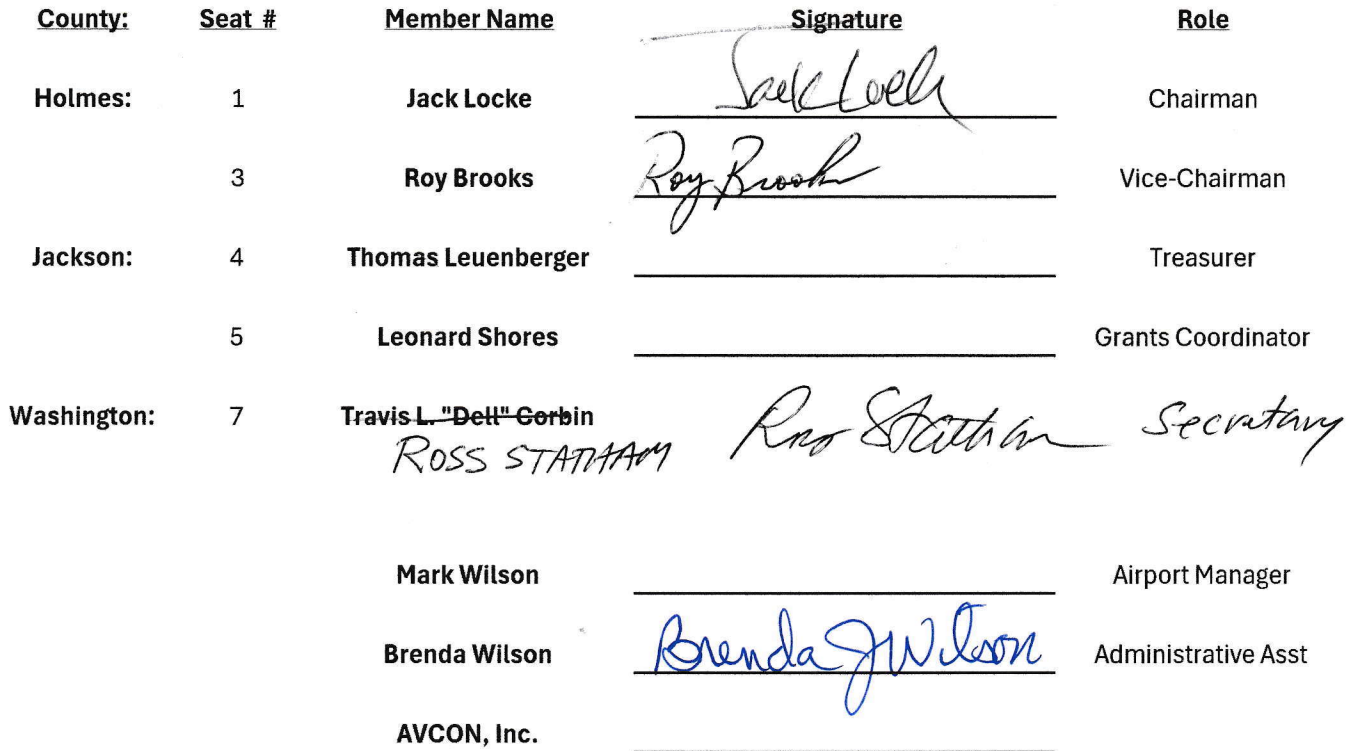 County: Seat # Member Name Signature Role
Holmes: 1 Jack Locke Jack Locke Chairman
3 Roy Brooks Roy Brooks Vice-Chairman
Jackson: 4 Thomas Leuenberger Treasurer
5 Leonard Shores Grants Coordinator
Washington: 7 Travis L. "Dell" Corbin Ross Statham Secretary
ROSS STATHAM
Mark Wilson Airport Manager
Brenda Wilson Brenda J Wilson Administrative Asst
AVCON, Inc.